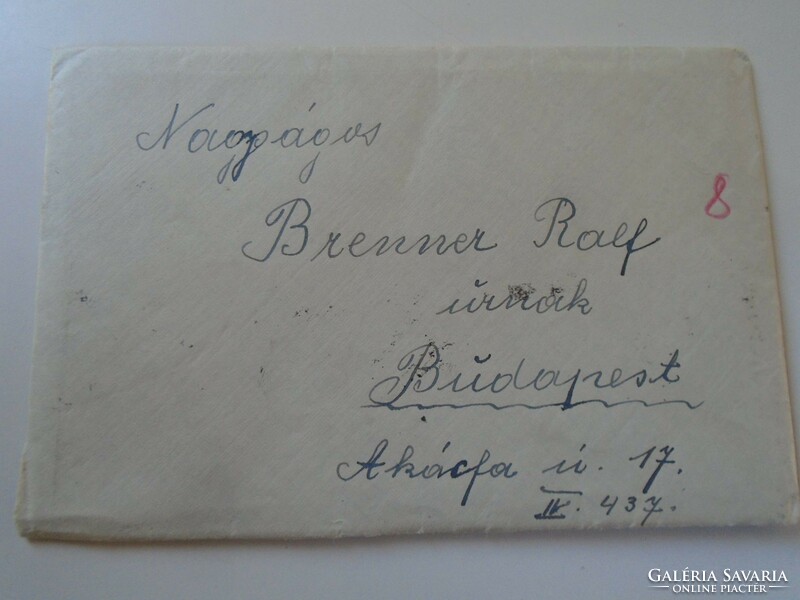 Nagyságos
8
Brenner Ralf
úrnak
Budapest
Akácfa ú. 17.
IV. 437.
GALÉRIA SAVARIA
ONLINE PIACTÉR